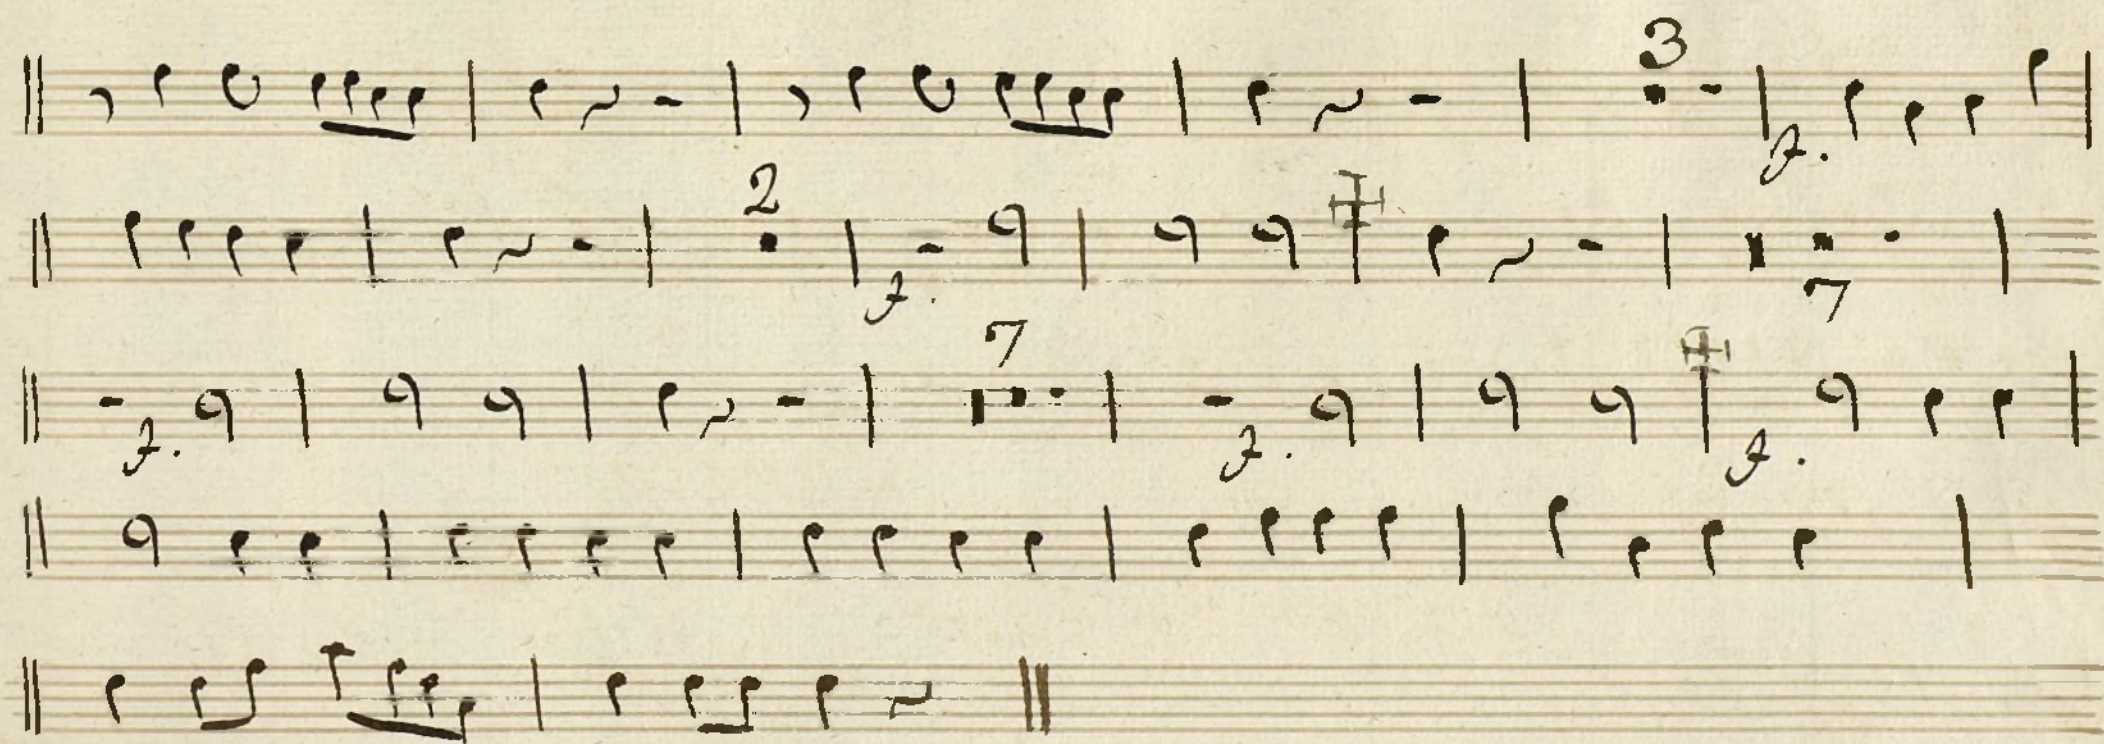 3
f.
2
f.
7
7
f. f. f.